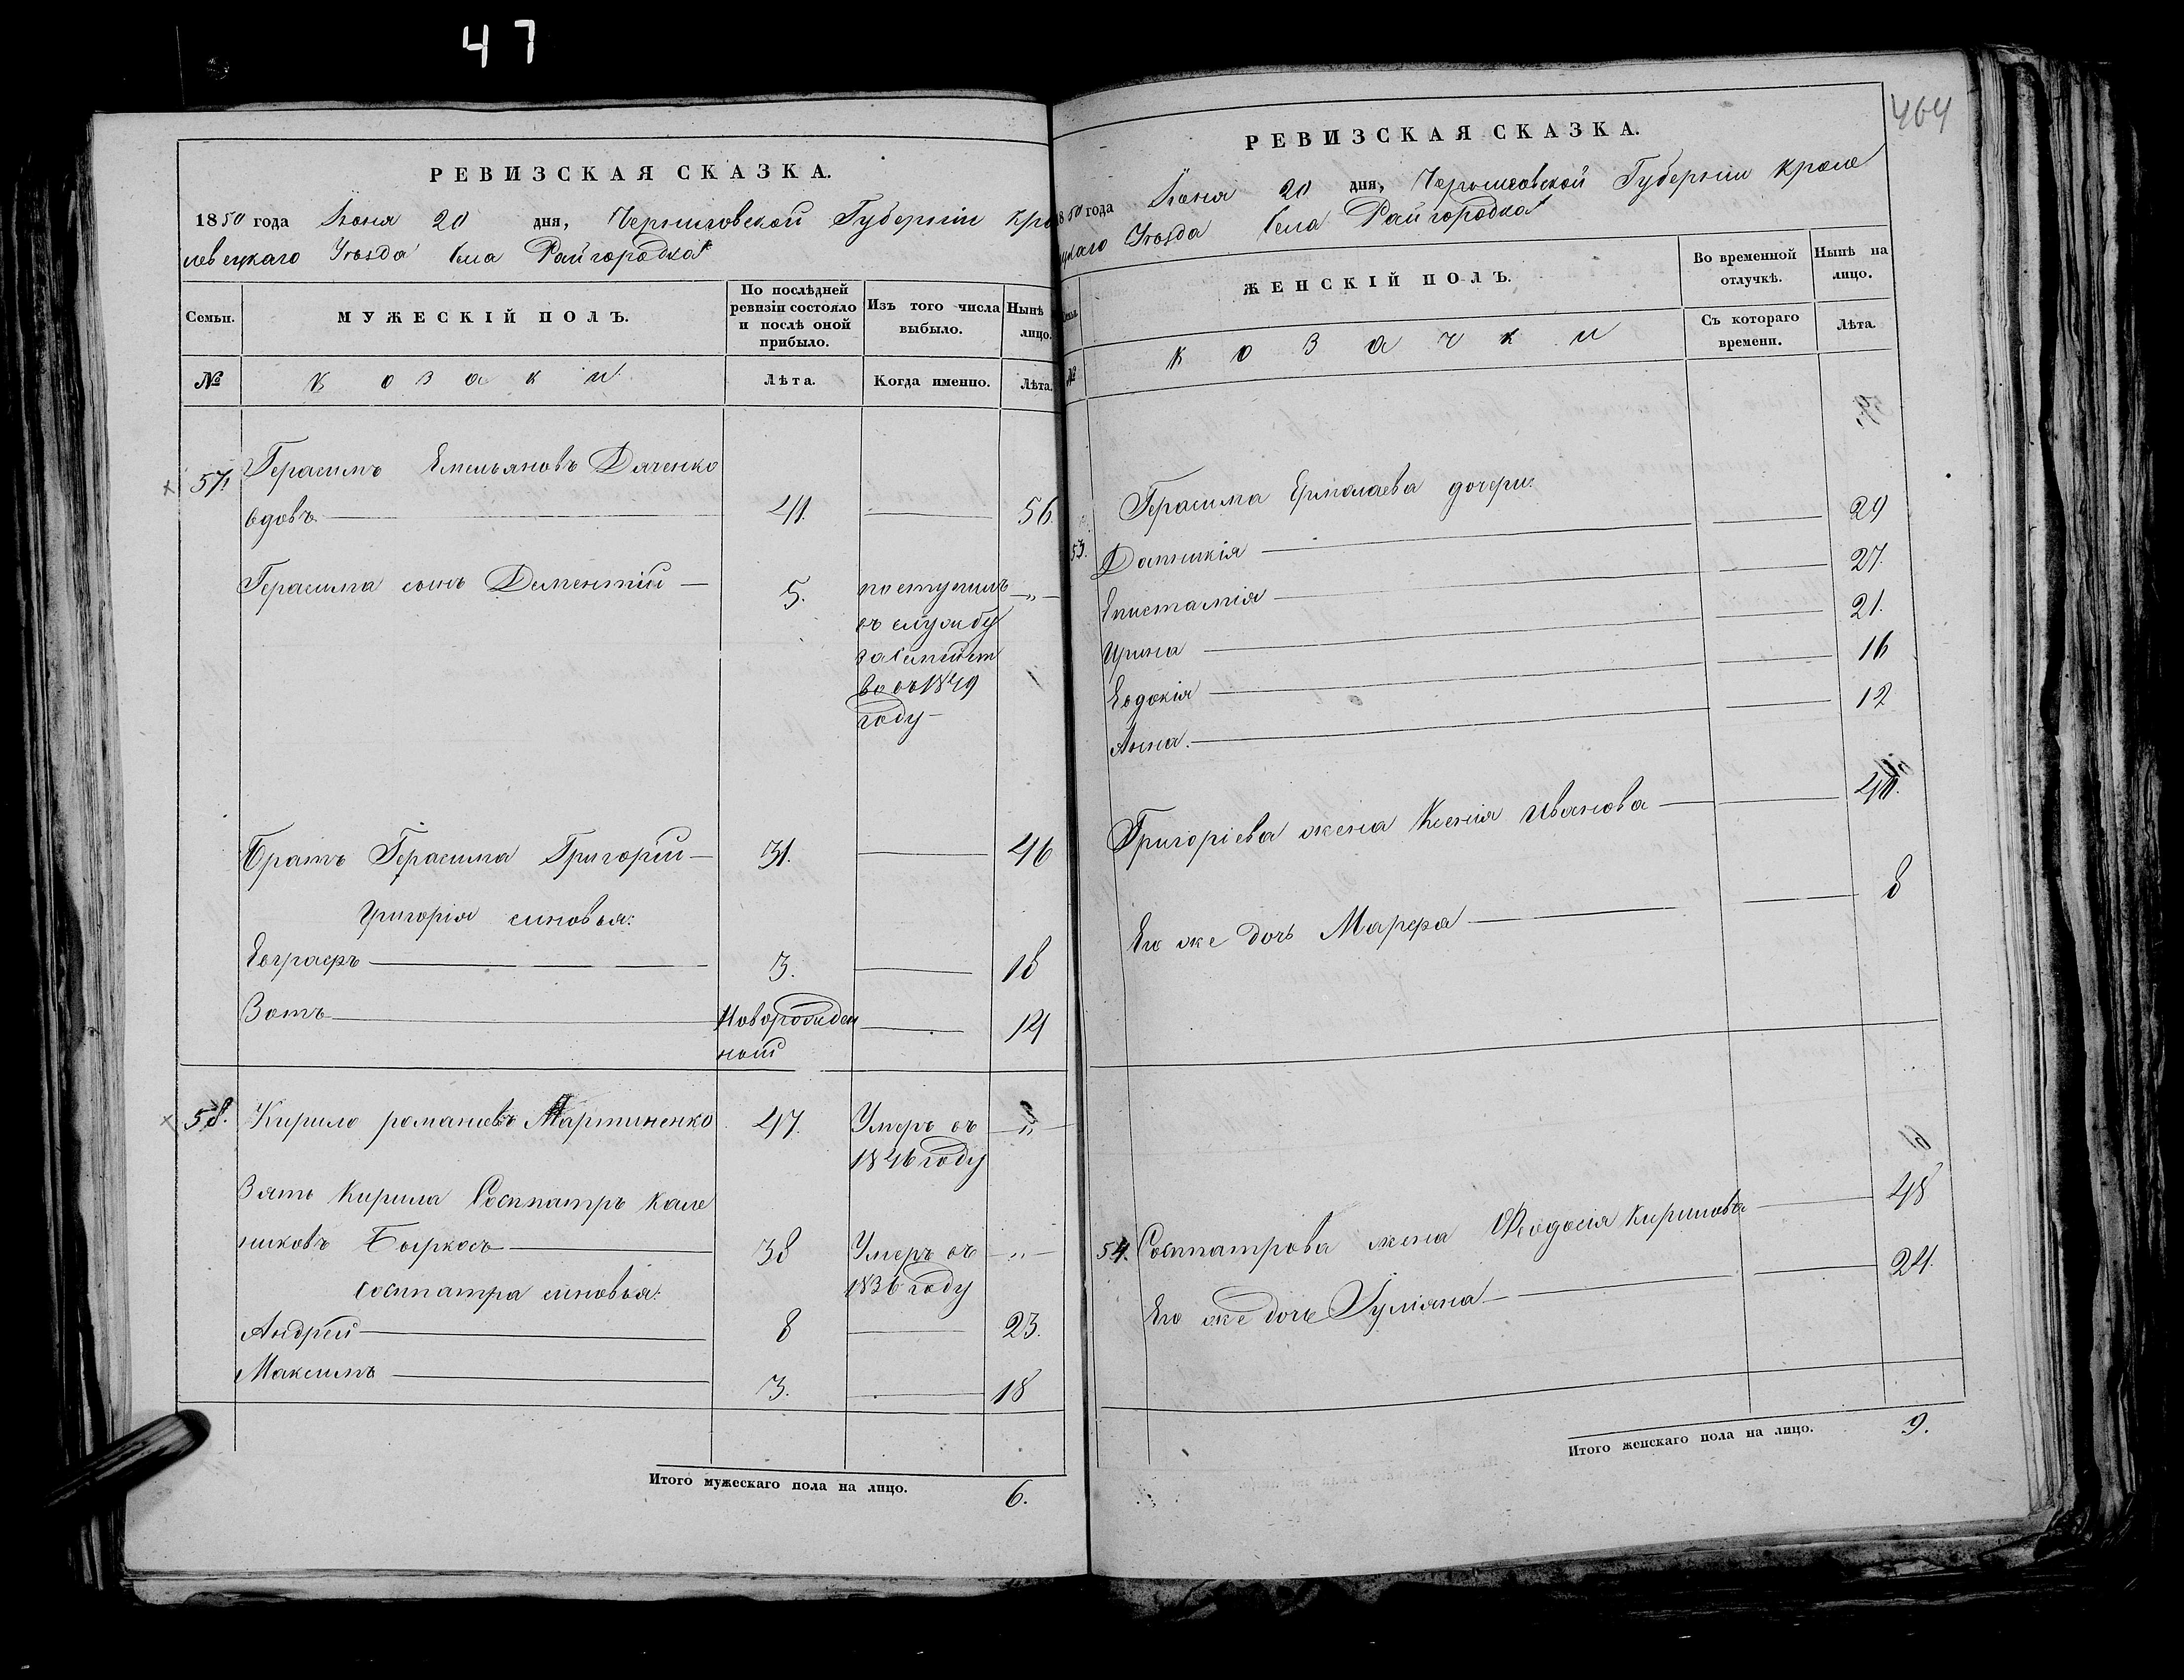 47
РЕВИЗСКАЯ СКАЗКА.
1850 года Іюня 20 дня, Черниговской Губерніи Кро
левецкаго Уѣзда села Райгородка
Семьи.
МУЖЕСКІЙ ПОЛЪ.
По послѣдней ревизіи состояло и послѣ оной прибыло.
Изъ того числа выбыло.
Нынѣ
лицо.
№
Козаки.
Лѣта.
Когда именно.
Лѣта.
57. Герасимъ Емельяновъ Дяченко
вдовъ 41. 56.
Герасима сынъ Дементій 5. поступилъ „
въ службу
1849
году
Братъ Герасима Григорій 31. 46
Григорія синовья:
Евграфъ 3. 18
Зотъ Новорожден 14
ный
58. Кирило романовъ Мартиненко 47. Умеръ въ „
1846 году
Зять Кирила Сосипатръ Кале
никовъ 38 Умеръ въ „
1836 году
Сосипатра синовья:
Андрей 8 23.
Максимъ 3. 18
Итого мужескаго пола на лицо. 6.
464
РЕВИЗСКАЯ СКАЗКА.
1850 года Іюня 20 дня, Черниговской Губерніи Кроле
цкаго Уѣзда села Райгородка
ЖЕНСКІЙ ПОЛЪ.
Во временной отлучкѣ.
Нынѣ на лицо.
№
Козачки
Съ котораго времени.
Лѣта.
Герасима Ермолаева дочери:
53. 29
Епистамія 27.
Ирина 21.
Евдокія 16
Анна. 12
Григоріева жена Ксенія Иванова
Его же дочь Марфа 8
54. Сосипатрова жена Феодосія Кирилова 48
Его же дочь Гуліяна 24.
Итого женскаго пола на лицо. 9.